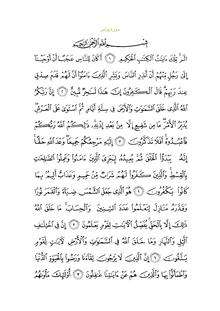 سورة يونس
بسم الله الرحمن الرحيم
الر تلك ءايت الكتب الحكيم ١ أكان للناس عجبا أن أوحينا
إلى رجل منهم أن أنذر الناس وبشر الذين ءامنوا أن لهم قدم صدق
عند ربهم قال الكفرون إن هذا لسحر مبين ٢ إن ربكم
الله الذى خلق السموت والأرض فى ستة أيام ثم استوى على العرش
يدبر الأمر ما من شفيع إلا من بعد إذنه ذلكم الله ربكم
فاعبدوه أفلا تذكرون ٣ إليه مرجعكم جميعا وعد الله حقا
إنه يبدؤا الخلق ثم يعيده ليجزى الذين ءامنوا وعملوا الصلحت
بالقسط والذين كفروا لهم شراب من حميم وعذاب أليم بما
كانوا يكفرون ٤ هو الذى جعل الشمس ضياء والقمر نورا
وقدره منازل لتعلموا عدد السنين والحساب ما خلق الله
ذلك إلا بالحق يفصل الأيت لقوم يعلمون ٥ إن فى اختلف
اليل والنهار وما خلق الله فى السموت والأرض لأيت لقوم
يتقون ٦ إن الذين لا يرجون لقاءنا ورضوا بالحيوة الدنيا
واطمأنوا بها والذين هم عن ءايتنا غفلون ٧ أولئك مأوىهم